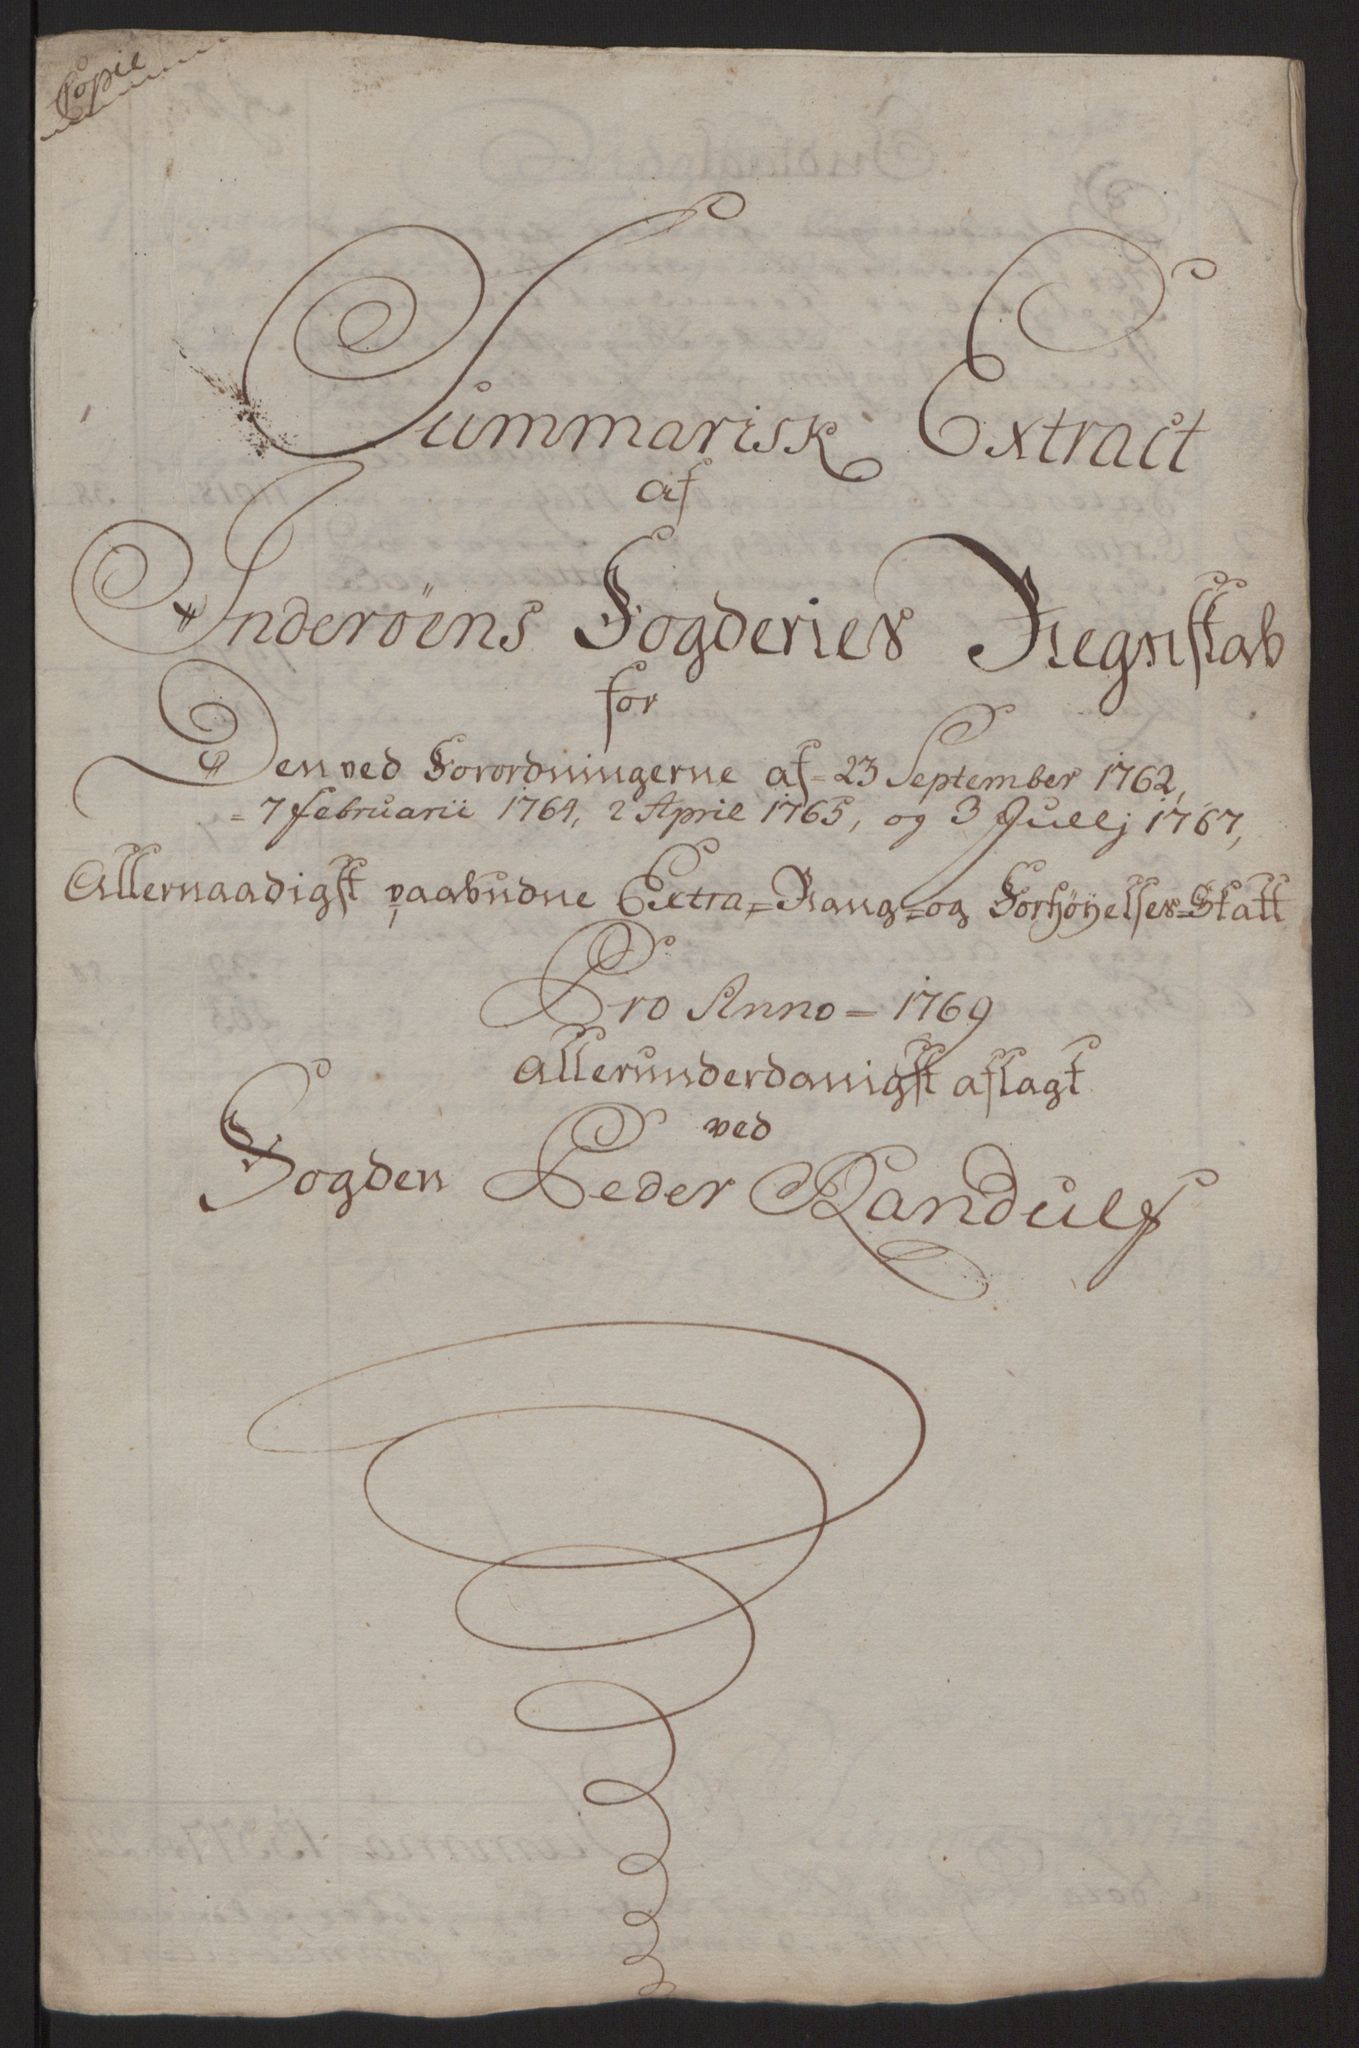 Copie
Summarisk Extract
af
Inderöens Fogderies Regnskab
for
Den ved Forordningerne af 23 September 1762,
= 7 Februarii 1764, 2 April 1765, og 3 Jullj 1767,
Allernaadigst paabudne Extra= Rang= og Forhøyelses=Skatt
Pro Anno = 1769
Allerunderdanigst aflagt
ved
Fogden Peder Randulf